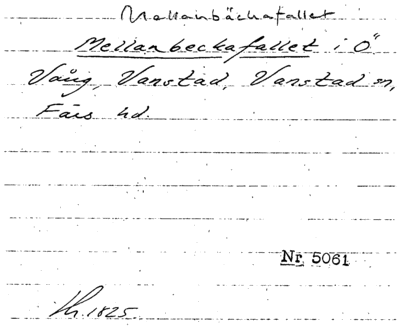 Mellanbäckafallet
Mellanbeckafallet i Ö
Vång, Vanstad, Vanstad sn,
Färs hd.
Nr 5061
Lh. 1825.